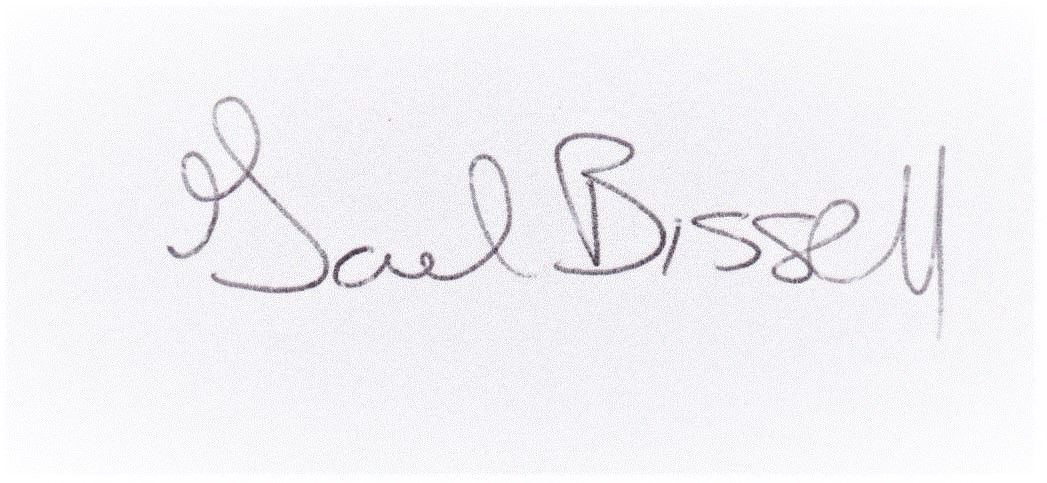 Gael Bissell